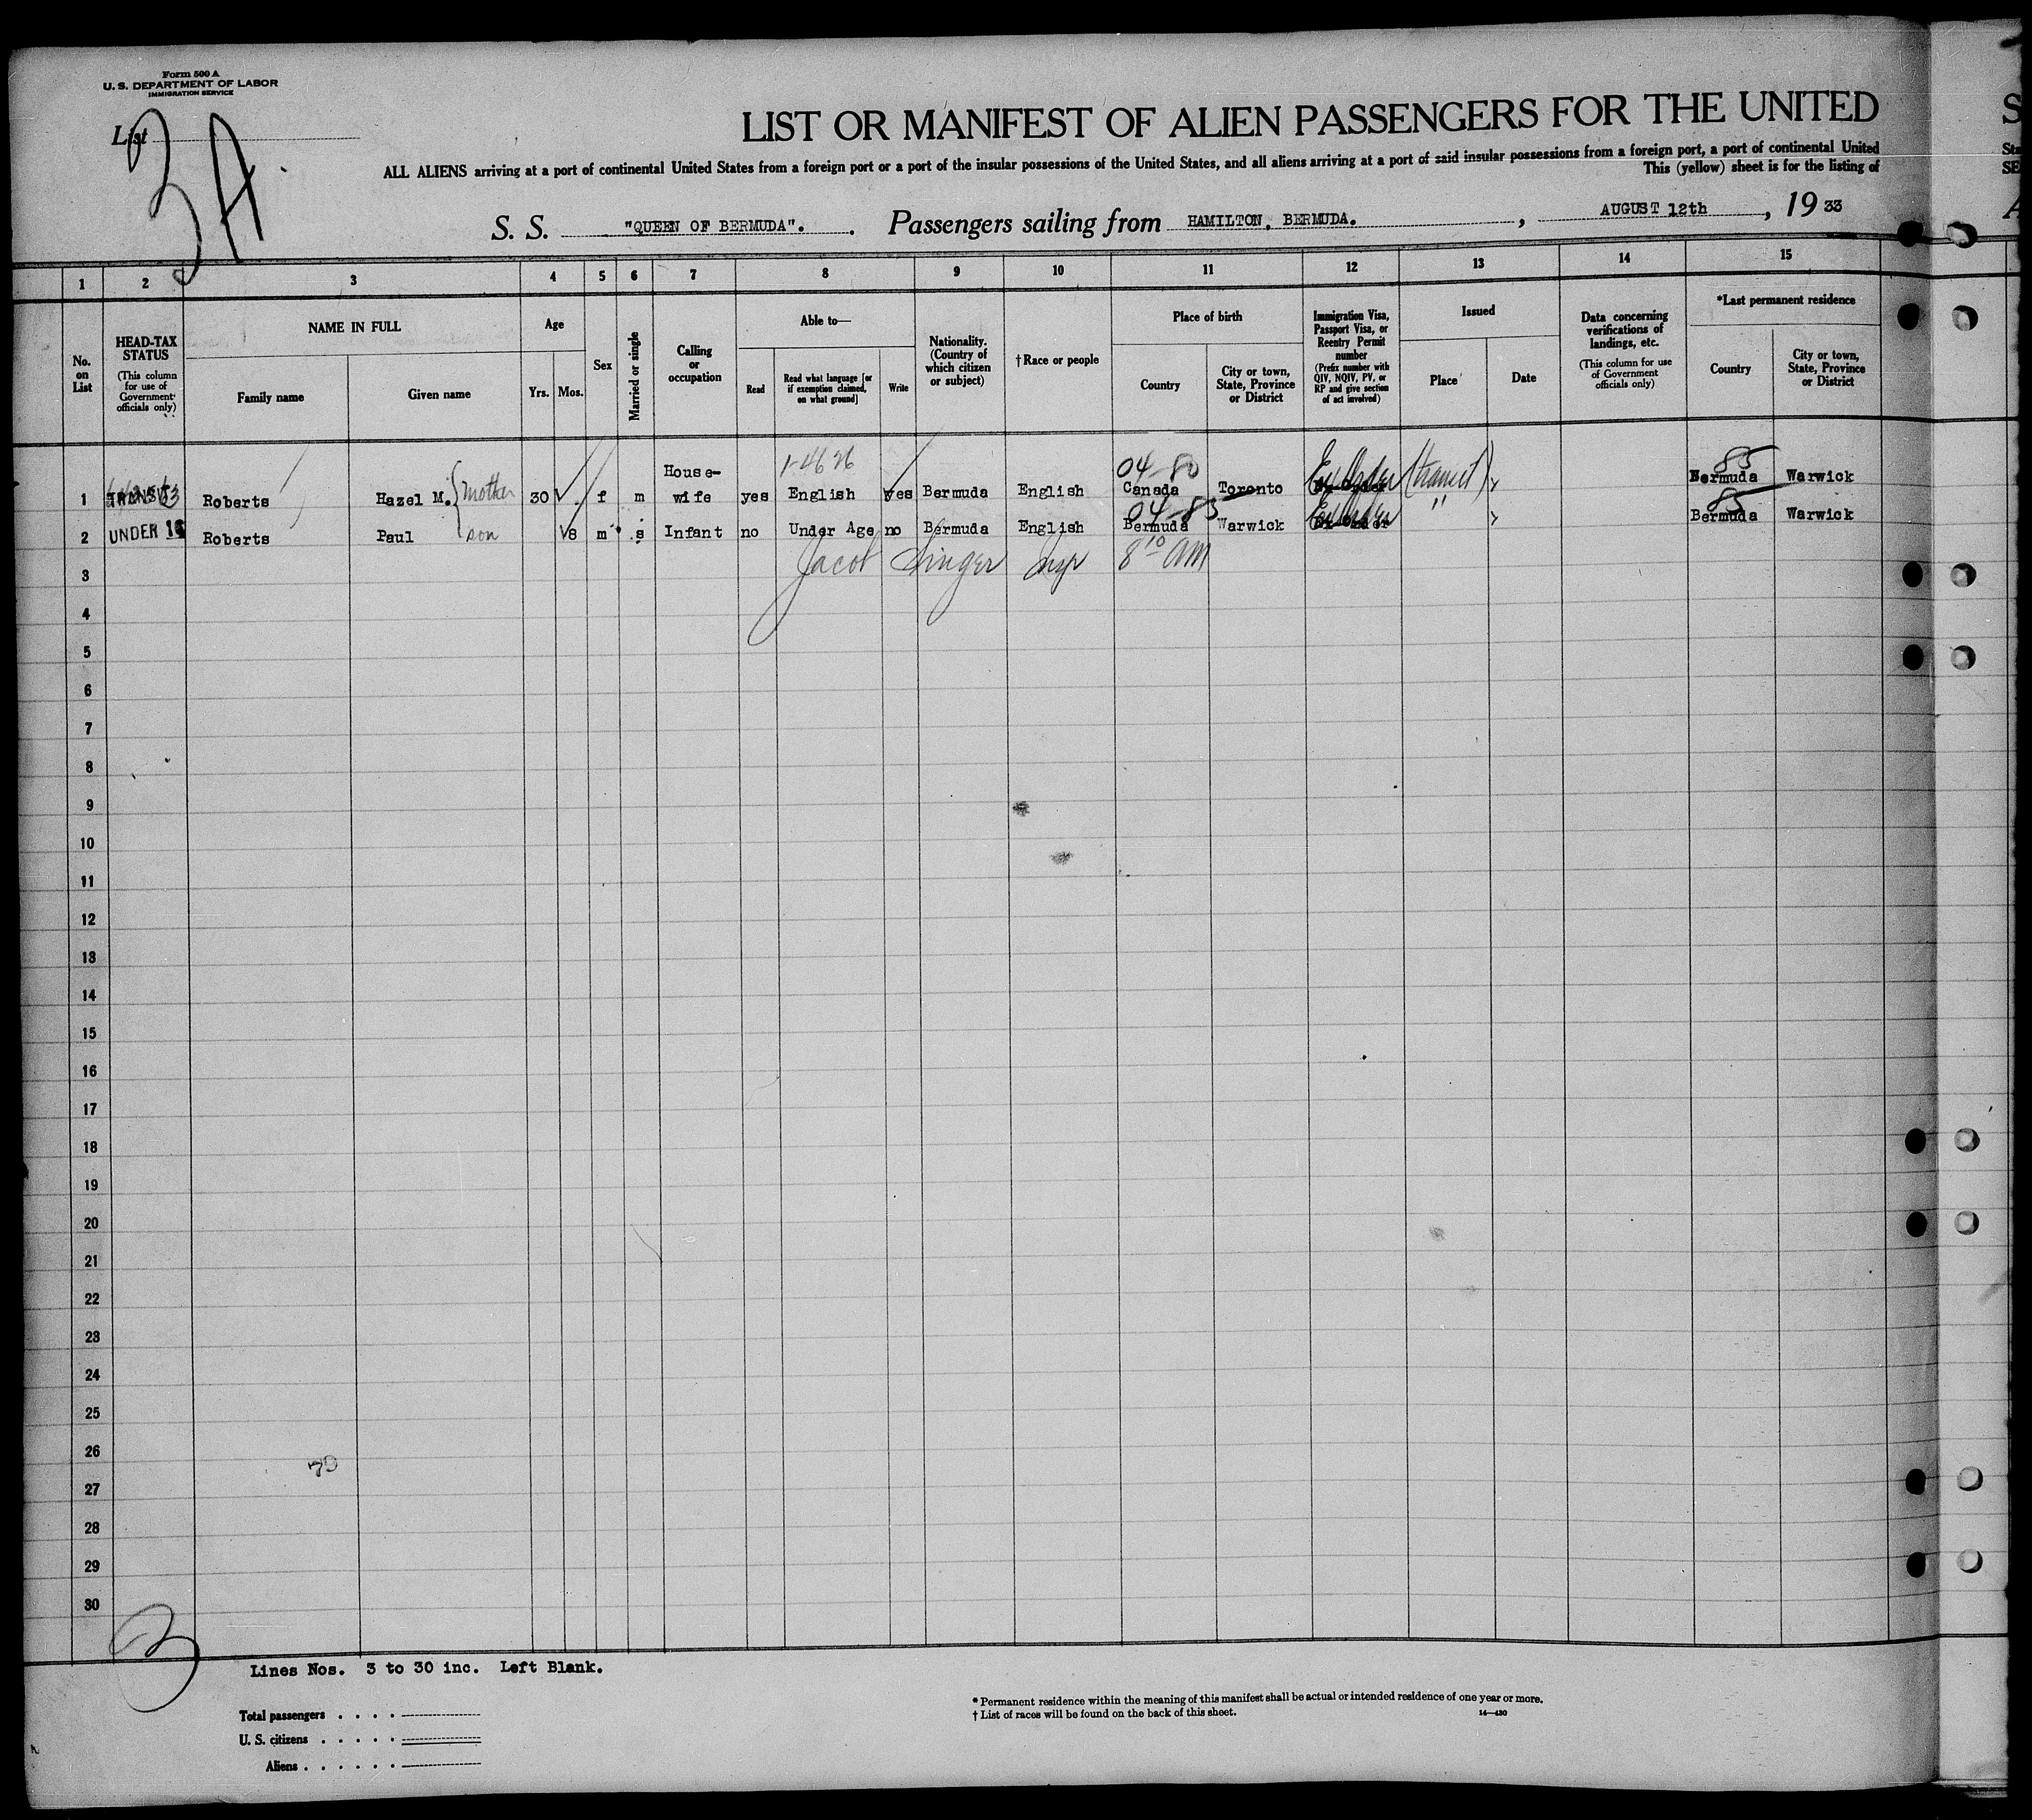 Form 500 A
U. S. DEPARTMENT OF LABOR
IMMIGRATION SERVICE
List 3 A.
LIST OR MANIFEST OF ALIEN PASSENGERS FOR THE UNITED
ALL ALIENS arriving at a port of continental United States from a foreign port or a port of the insular possessions of the United States, and all aliens arriving at a port of said insular possessions from a foreign port, a port of continental United
This (yellow) sheet is for the listing of
S. S. "QUEEN OF BERMUDA". Passengers sailing from HAMILTON, BERMUDA. , AUGUST 12th , 19 33
1 2 3 4 5 6 7 8 9 10 11 12 13 14 15
No. on List
HEAD-TAX STATUS (This column for use of Government officials only)
NAME IN FULL
Family name
Given name
Age
Yrs. Mos.
Sex
Married or single
Calling or occupation
Able to—
Read
Read what language [or if exemption claimed, on what ground]
Write
Nationality. (Country of which citizen or subject)
†Race or people
Place of birth
Country
City or town, State, Province or District
Immigration Visa, Passport Visa, or Reentry Permit number (Prefix number with QIV, NQIV, PV, or RP and give section of act involved)
Issued
Place
Date
Data concerning verifications of landings, etc. (This column for use of Government officials only)
*Last permanent residence
Country
City or town, State, Province or District
1-4626 04-80 85
1 TRANSIT Roberts Hazel M. mother 30 f m House-wife yes English yes Bermuda English Canada Toronto Ex Order (transit) Bermuda Warwick
04-85 85
2 UNDER 16 Roberts Paul son 8 m s Infant no Under Age no Bermuda English Bermuda Warwick Ex Order " Bermuda Warwick
3 Jacob Singer Insp 8 10 AM
4
5
6
7
8
9
10
11
12
13
14
15
16
17
18
19
20
21
22
23
24
25
26
27
28
29
30
Lines Nos. 3 to 30 inc. Left Blank.
Total passengers . . . .
U. S. citizens . . . . .
Aliens . . . . . .
* Permanent residence within the meaning of this manifest shall be actual or intended residence of one year or more.
† List of races will be found on the back of this sheet.
14—430